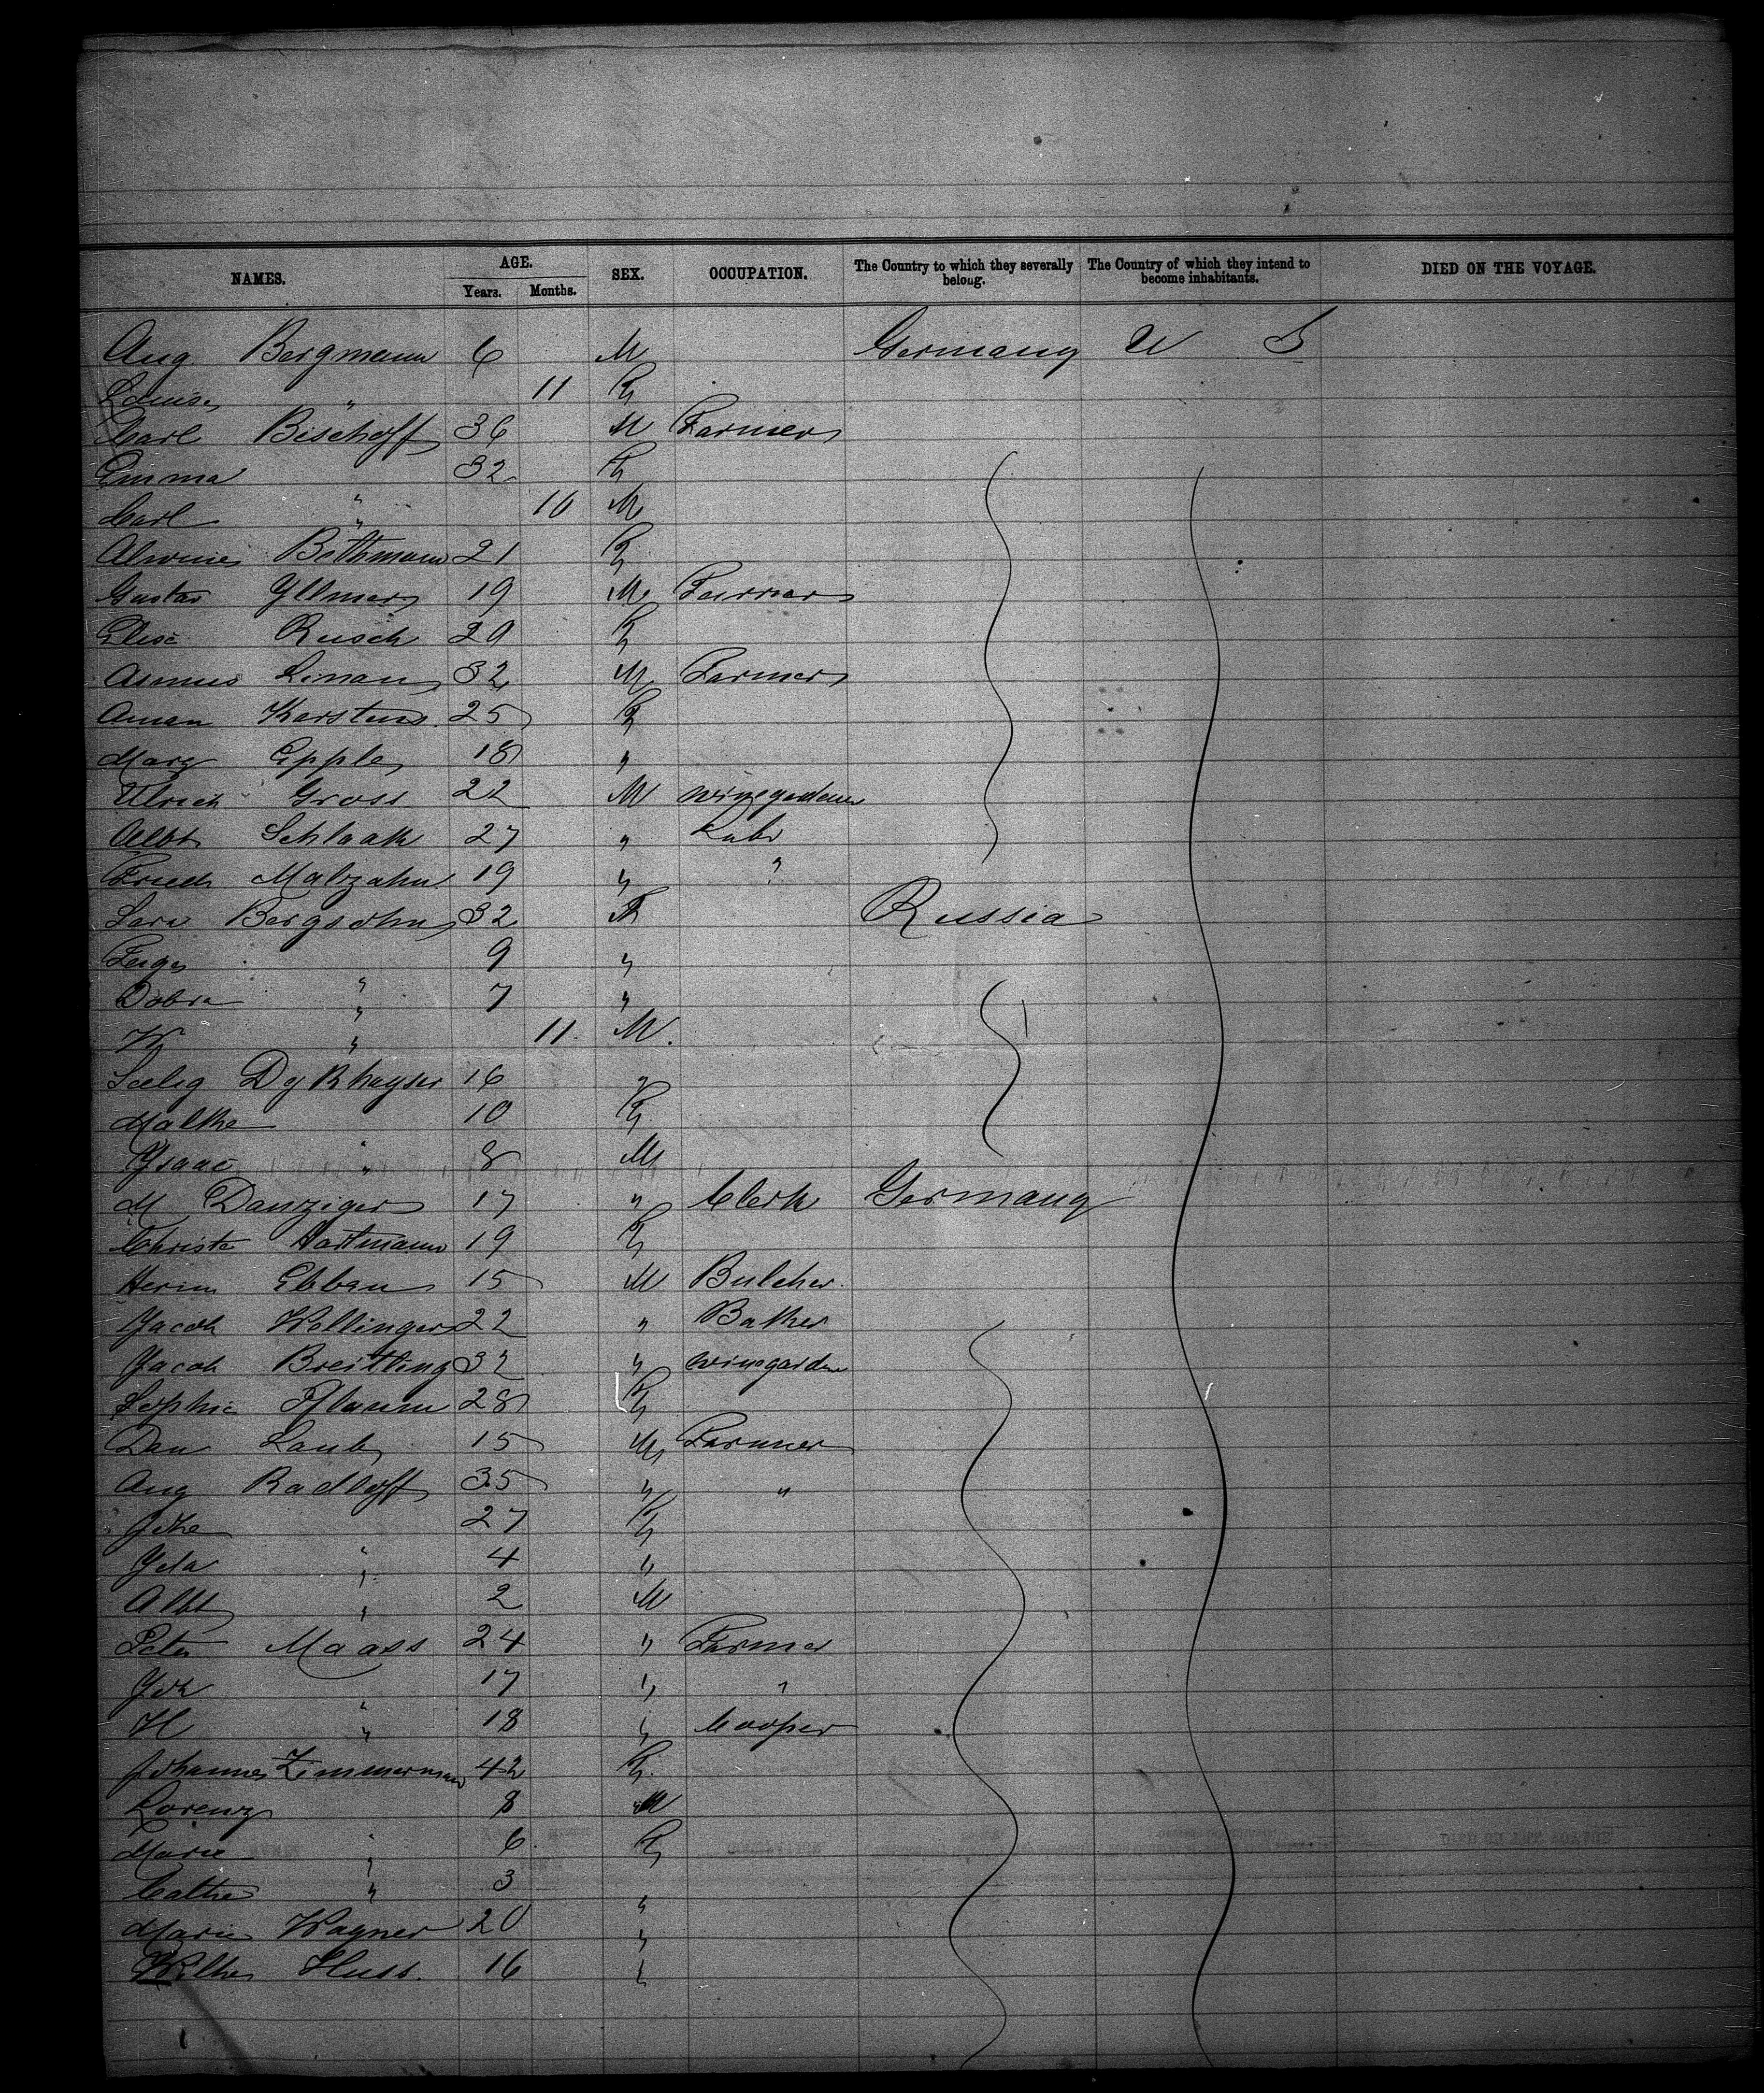 NAMES. AGE. Years. Months. SEX. OCCUPATION. The Country to which they severally belong. The Country of which they intend to become inhabitants. DIED ON THE VOYAGE.
Aug Bergmann 6 M Germany U S
Louise " 11 F
Carl Bischoff 36 M Farmer
Emma " 32 F
Carl " 10 M
Alwine Bothmann 21 F
Gustav Yllmer 19 M Farmer
Elise Rusch 20 F
Asmus Linau 32 M Farmer
Karstens 25 F
Marg Epple 18 "
Ulrich Gross 22 M winegardener
Albt Schlaak 27 " Labr
Friedr Malzahn 19 " "
Sara Bergsohn 32 F Russia
Feige " 9 "
Dobra " 7 "
W " 11 M
Seelig 16 "
Malke " 10 F
Ysaac " 8 M
M Danziger 17 " Clerk Germany
Christe Hartmann 19 F
Herm Ebben 15 M Butcher
Jacob Wellinger 22 " Baker
Jacob Breitling 32 " winegarden
Sophie Pflaum 28 F
Dan Laub 15 M Farmer
Aug Radloff 35 " "
Johe " 27 F
Yda " 4 "
Albt " 2 M
Peter Maass 24 " Farmer
Joh " 17 " "
H " 18 " Cooper
Johannes Zimmerman 42 F
Lorenz " 8 M
Marie " 6 F
Cathe " 3 "
Marie Wagner 20 "
Wilhe Huss 16 "